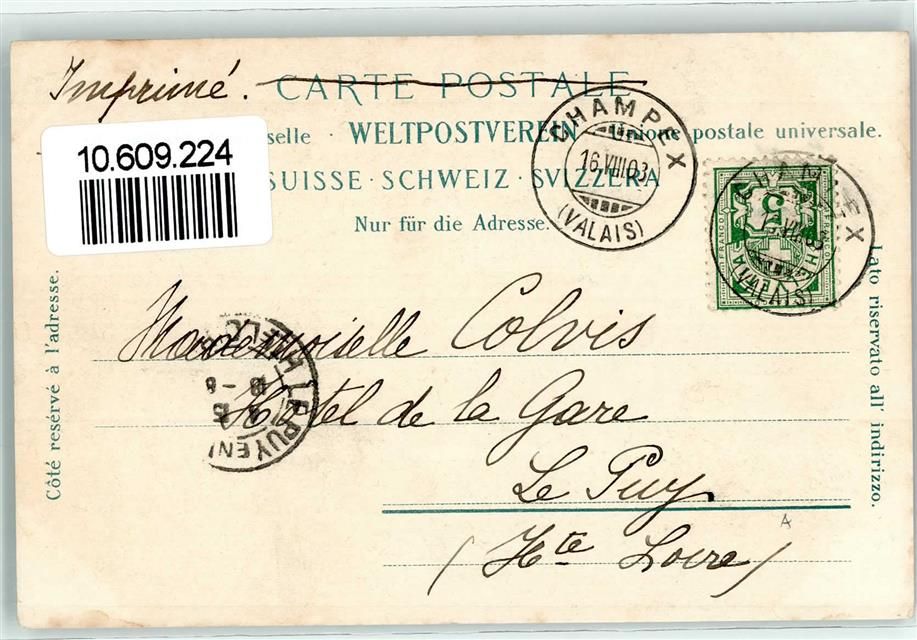 Imprimé. CARTE POSTALE
selle · WELTPOSTVEREIN · Unione postale universale.
SUISSE · SCHWEIZ · SVIZZERA
Nur für die Adresse.
10.609.224
CHAMPEX
16.VIII.03
(VALAIS)
CHAMPEX
(VALAIS)
5
FRANCO
HELVETIA
Côté reservé à l'adresse.
Lato riservato all' indirizzo.
Mademoiselle Colvis
Hôtel de la Gare
Le Puy
(Hte Loire)
LE PUY EN